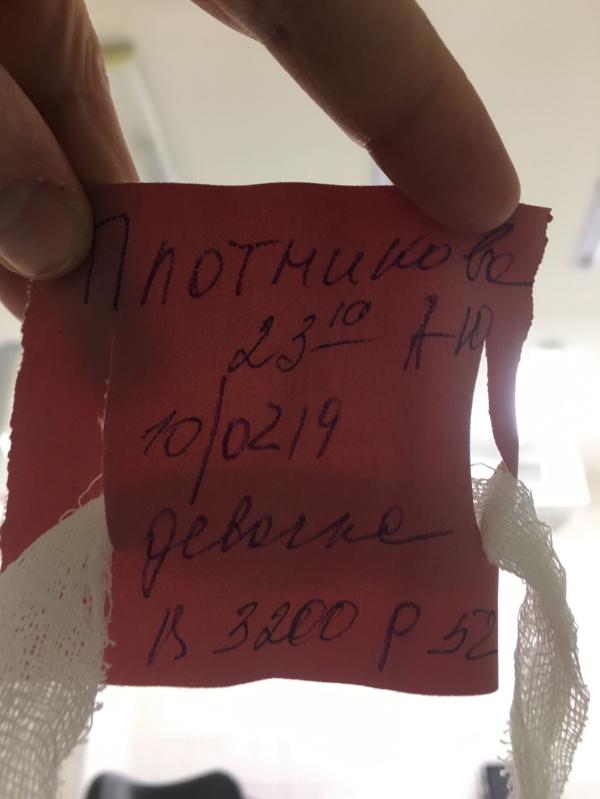 Плотникова
23 10 А-Ю
10/02 19
девочка
В 3200 Р 52